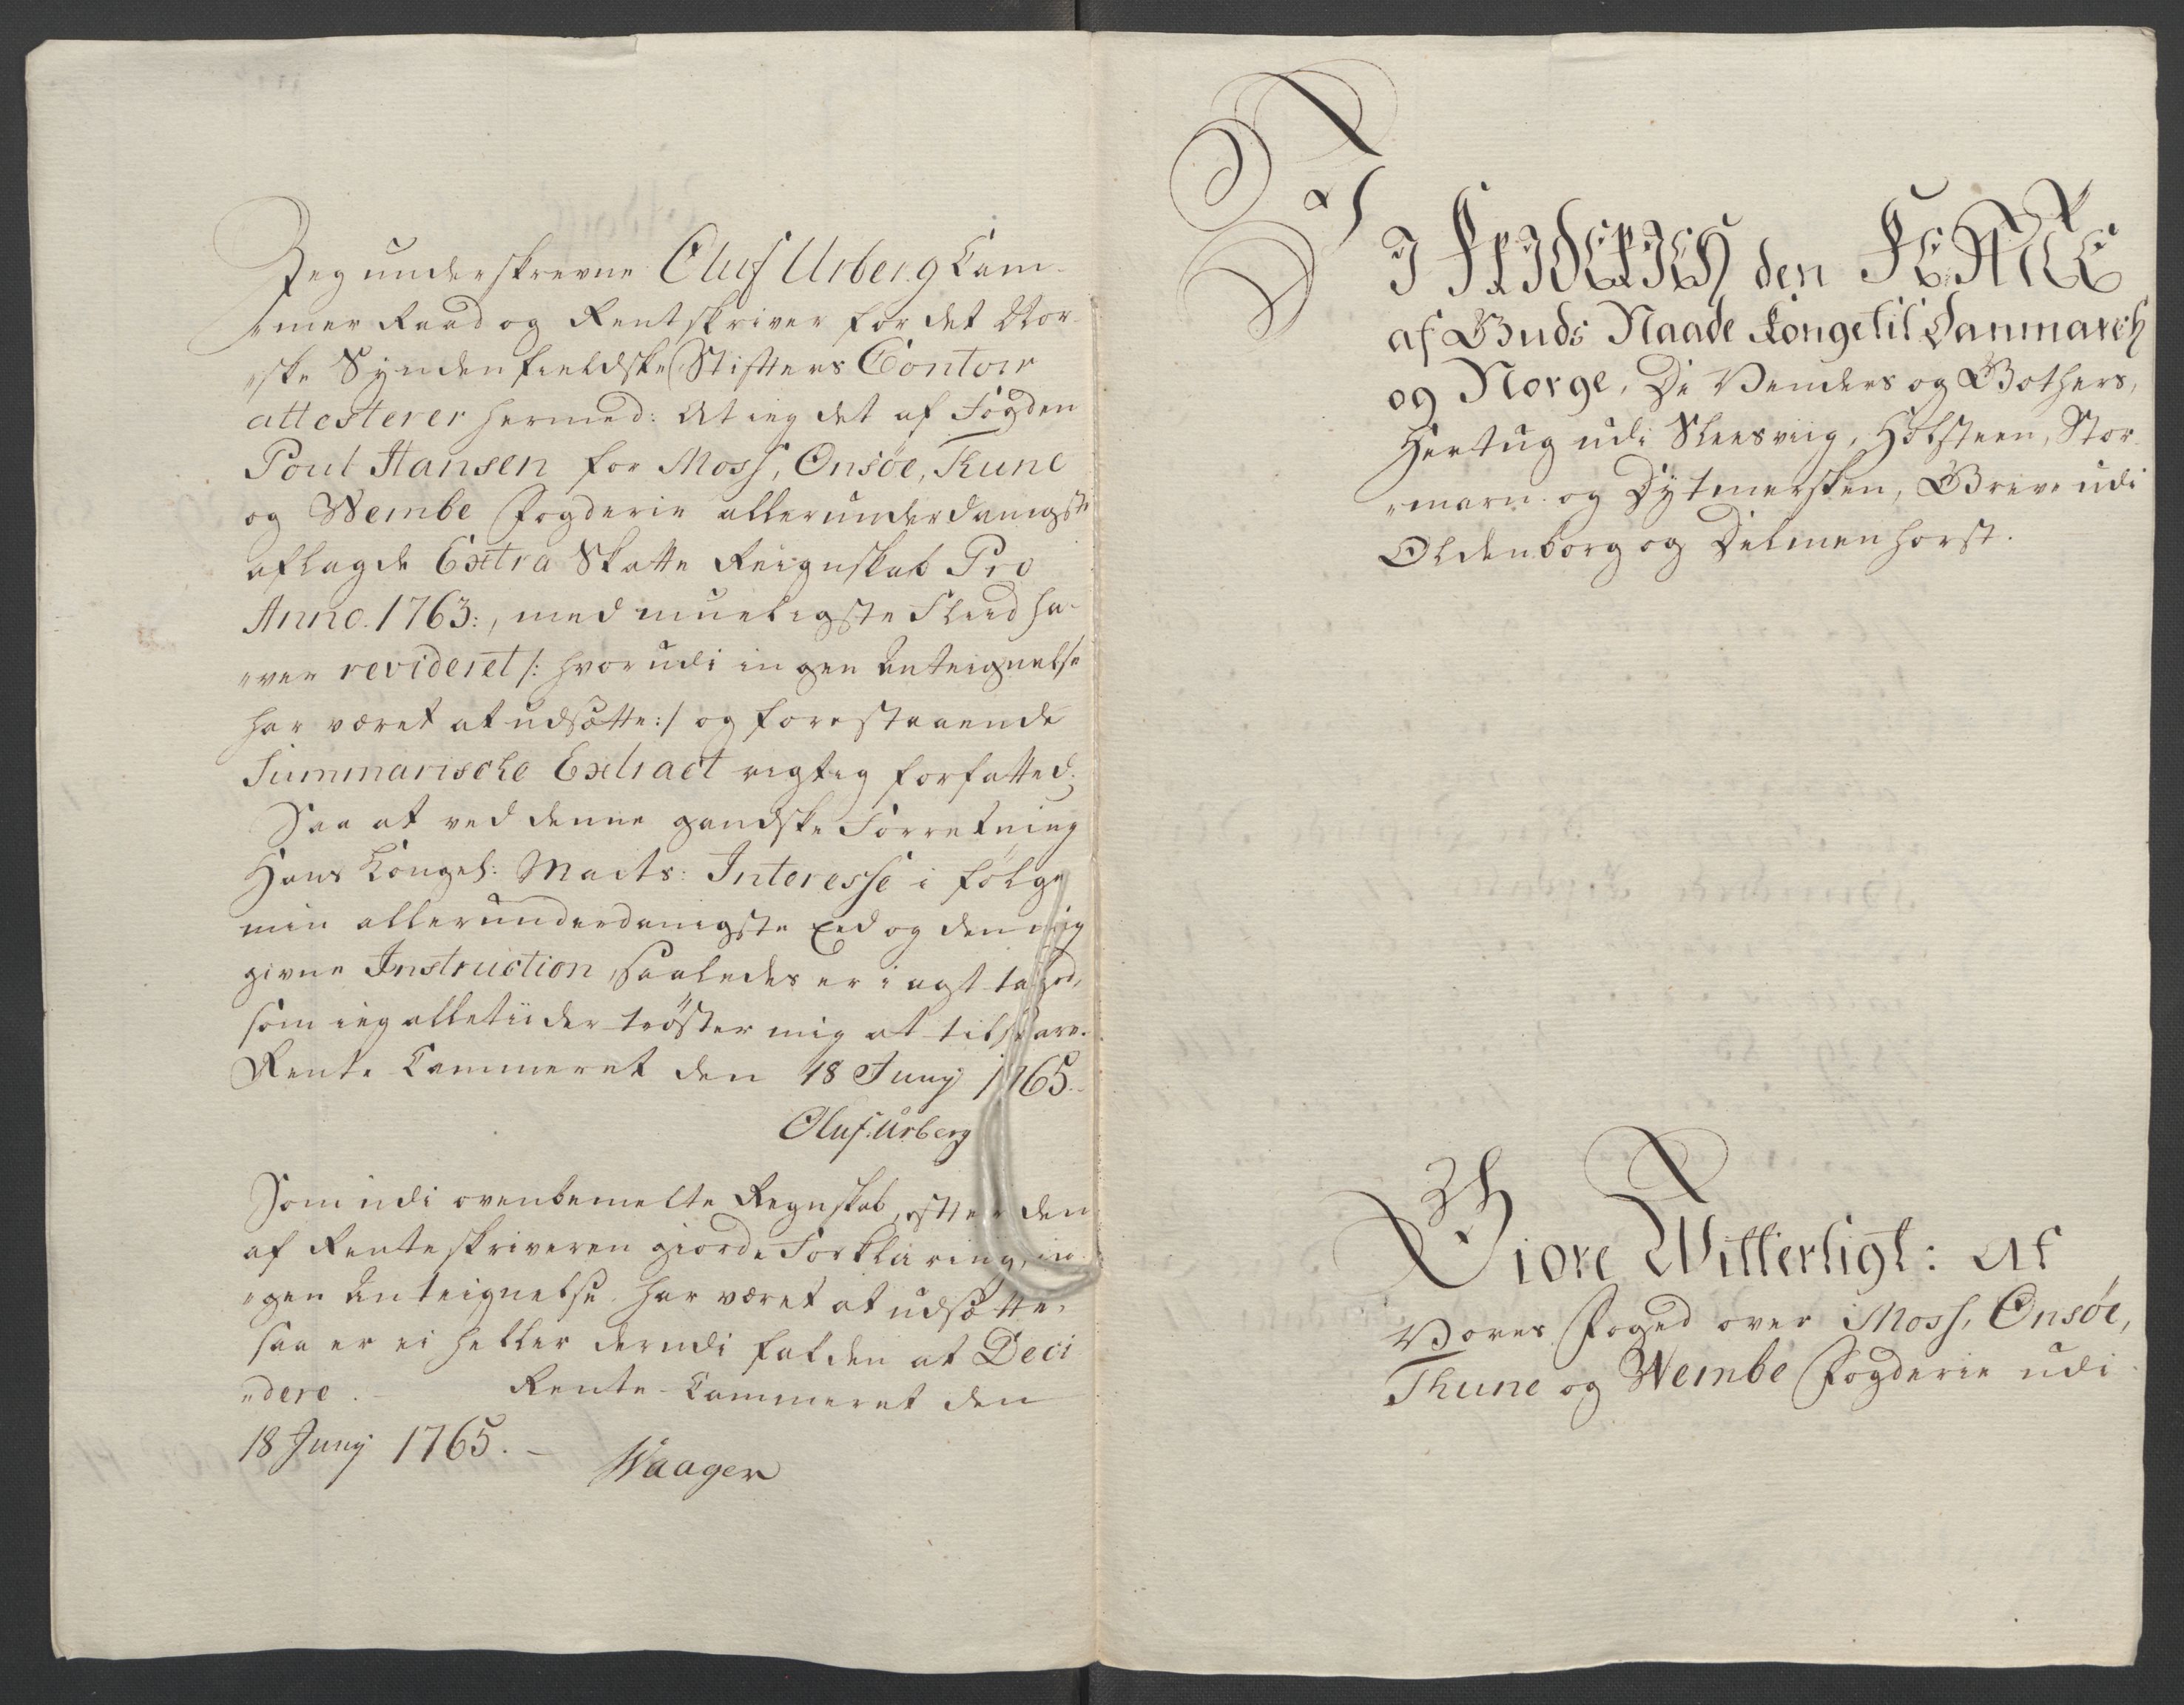 Jeg underskrevne Oluf Urberg Cam-
"mer Raad og Rentskriver for det Nor-
"ske Syndenfieldske Stifters Contoir
attesterer hermed: At ieg det af Fogden
Poul Hansen for Moss, Onsøe, Thune
og Wembe Fogderie allerunderdanigst
aflagde Extra Skatte Reignskab Pro
Anno. 1763:, med mueligste Fliid ha-
"ver revideret /: hvorudi ingen Anteignelse
har været at udsætte:/ og forestaaende
Summariske Extract rigtig forfatted;
Saa at ved denne gandske Forretning
Hans Kongel: Maits: Interesse i følge
min allerunderdanigste Eed og den mig
givne Instruction, saaledes er i agt taged,
som ieg alletiider trøster mig at tilsvare.
Rente Cammeret den 18 Junij 1765.
Oluf Urberg
Som udi ovenbemelte Regnskab, efter den
af Renteskriveren giorde Forklaring, in-
"gen Anteignelse har været at udsætte,
saa er ei heller derudi falden at Deci
"dere. Rente-Cammeret den
18 Junij 1765. Waager
VI FRIDERICH den FEMTE
af Guds Naade Konge til Danmarch
og Norge, De Venders og Gothers,
Hertug udi Sleesviig, Holsteen, Stor-
"marn og Dytmersken, Greve udi
Oldenborg og Delmenhorst.
Giøre Witterligt: At
Vores Foged over Moss, Onsøe,
Thune og Wembe Fogderie udi